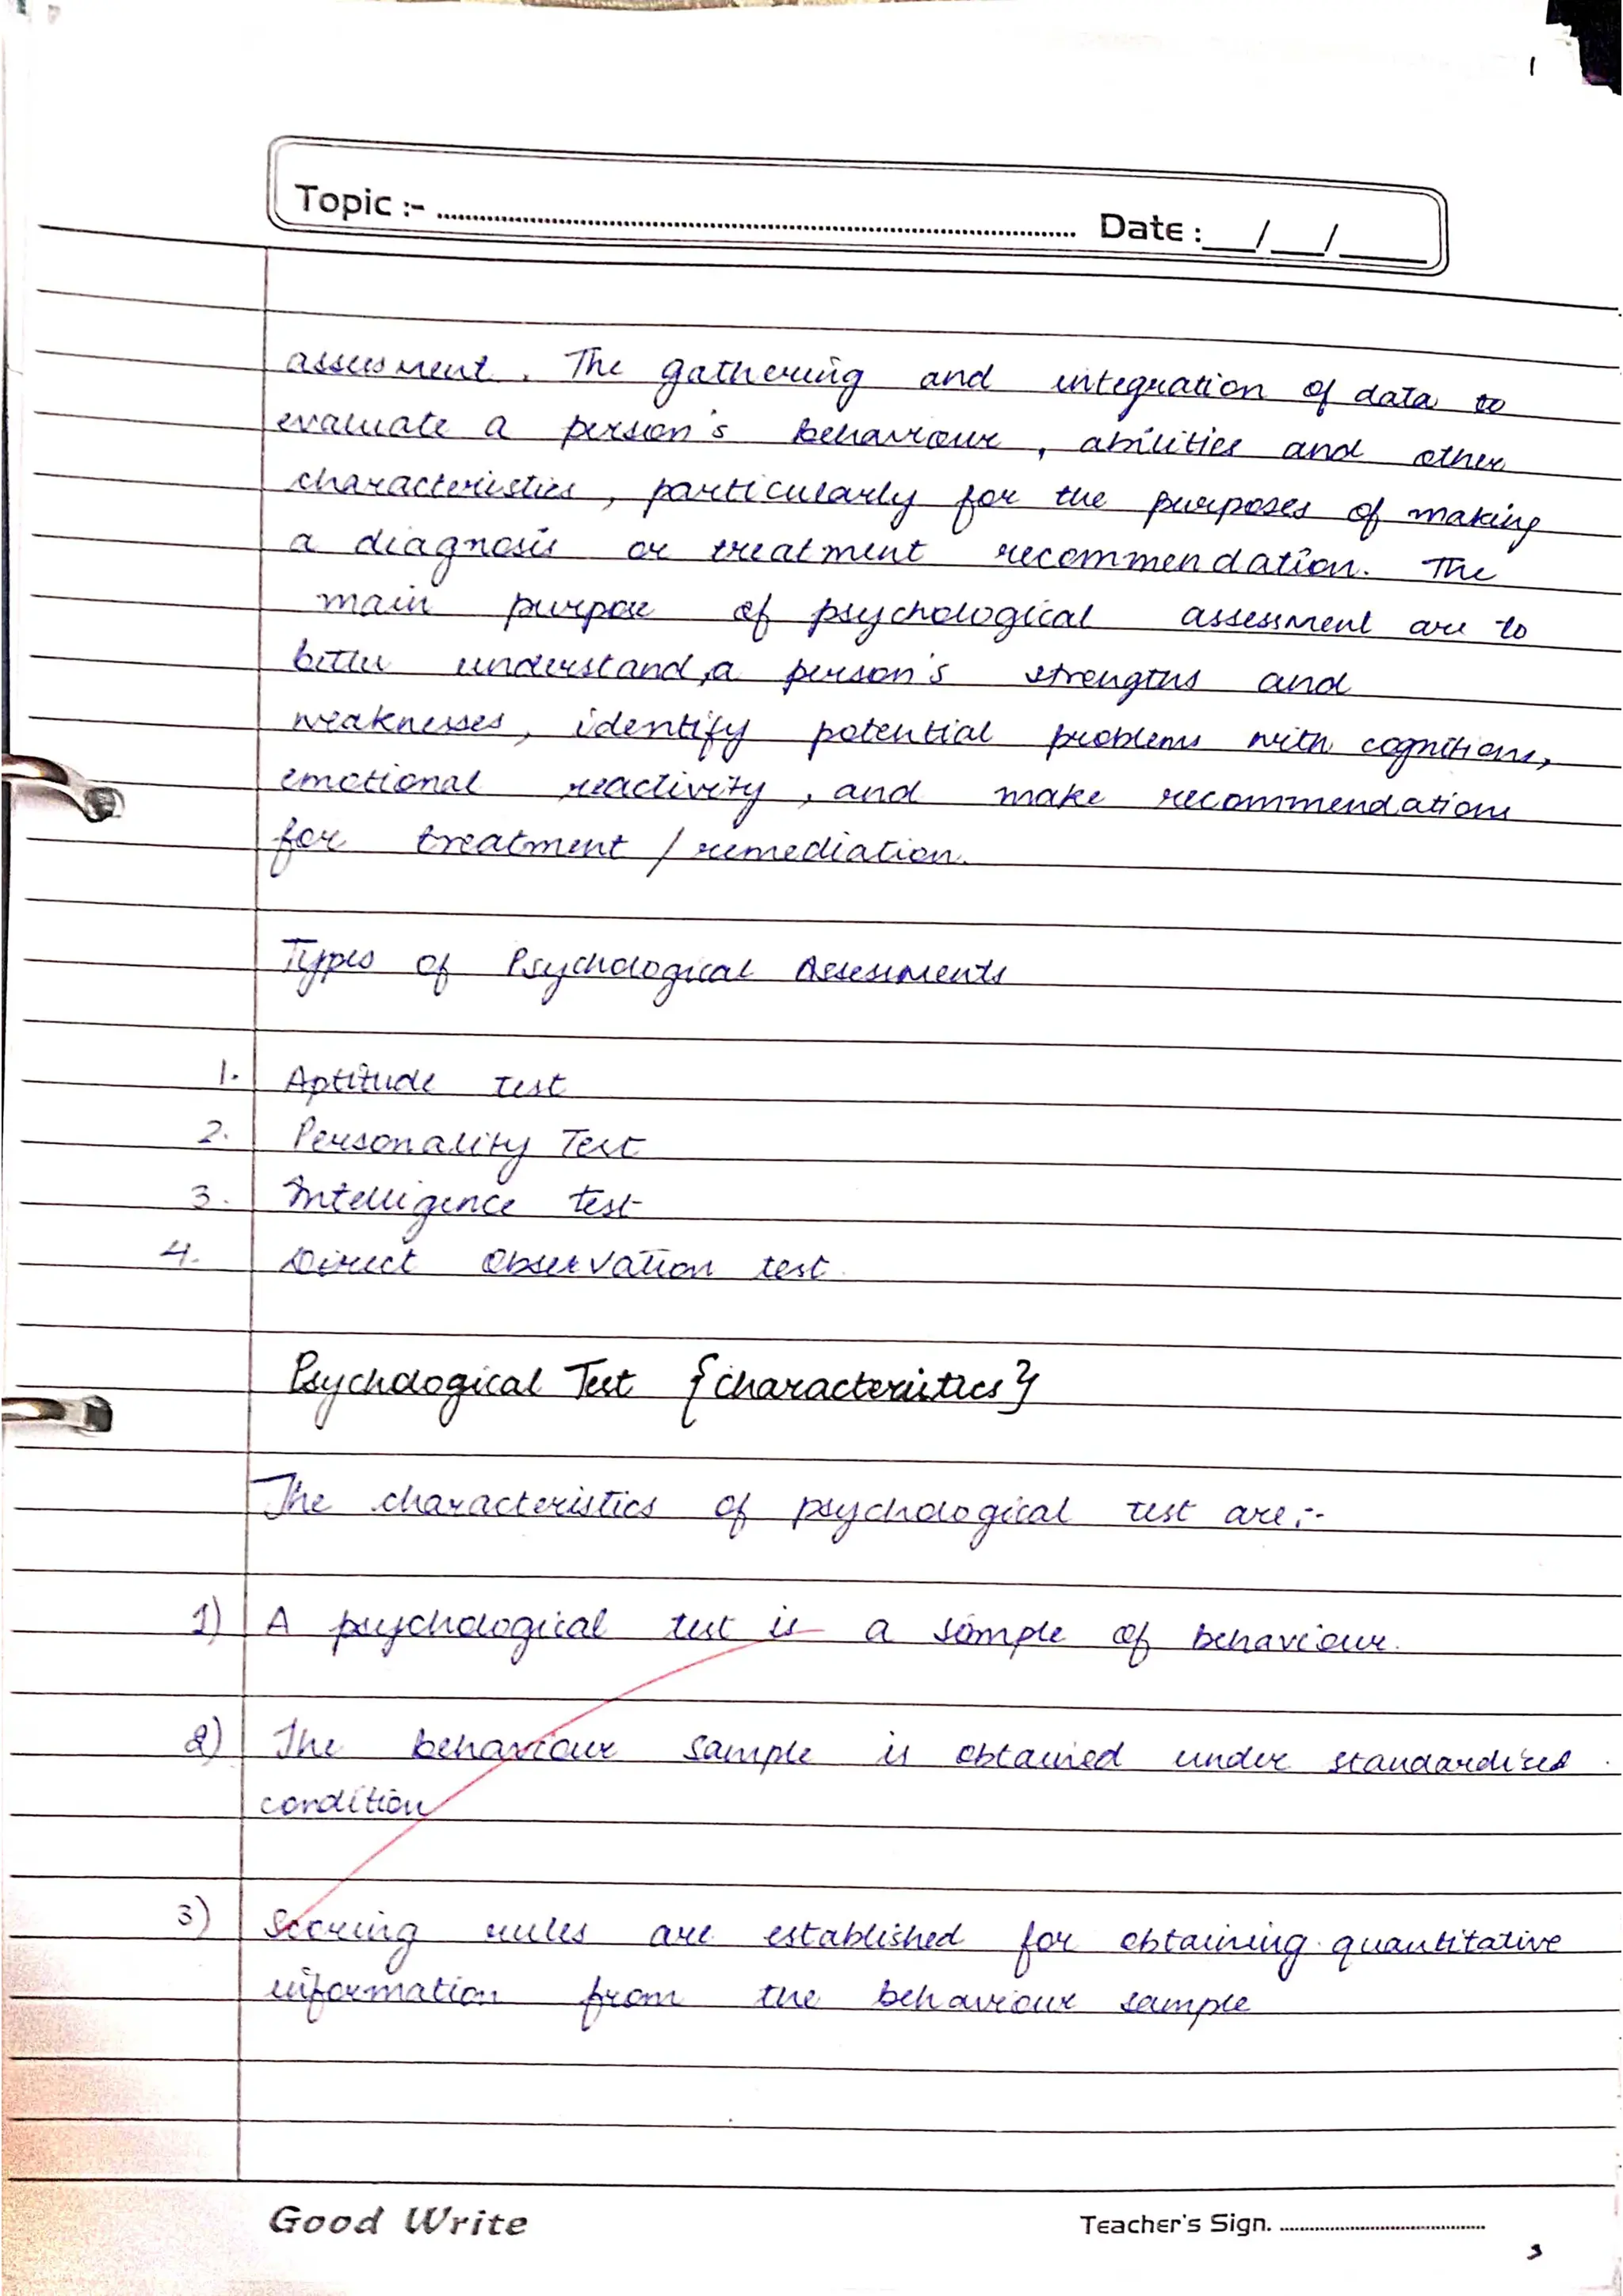 1
Topic :- ........ Date : __/__/____
assesment. The gathering and integration of data to
evaluate a person's behaviour, abilities and other
characteristics, particularly for the purposes of making
a diagnosis or treatment recommendation. The
main purpose of psychological assessment are to
better understand, a person's strengths and
weaknesses, identify potential problems with cognitions,
emotional reactivity, and make recommendations
for treatment / remediation.
Types of Psychological Assessments
1. Aptitude test
2. Personality Test
3. Intelligence test
4. Direct Observation test.
Psychological Test {characteristics}
The characteristics of psychological test are:-
1) A psychological test is a sample of behaviour.
2) The behaviour sample is obtained under standardised
condition
3) Scoring rules are established for obtaining quantitative
information from the behaviour sample
Good Write Teacher's Sign. ........